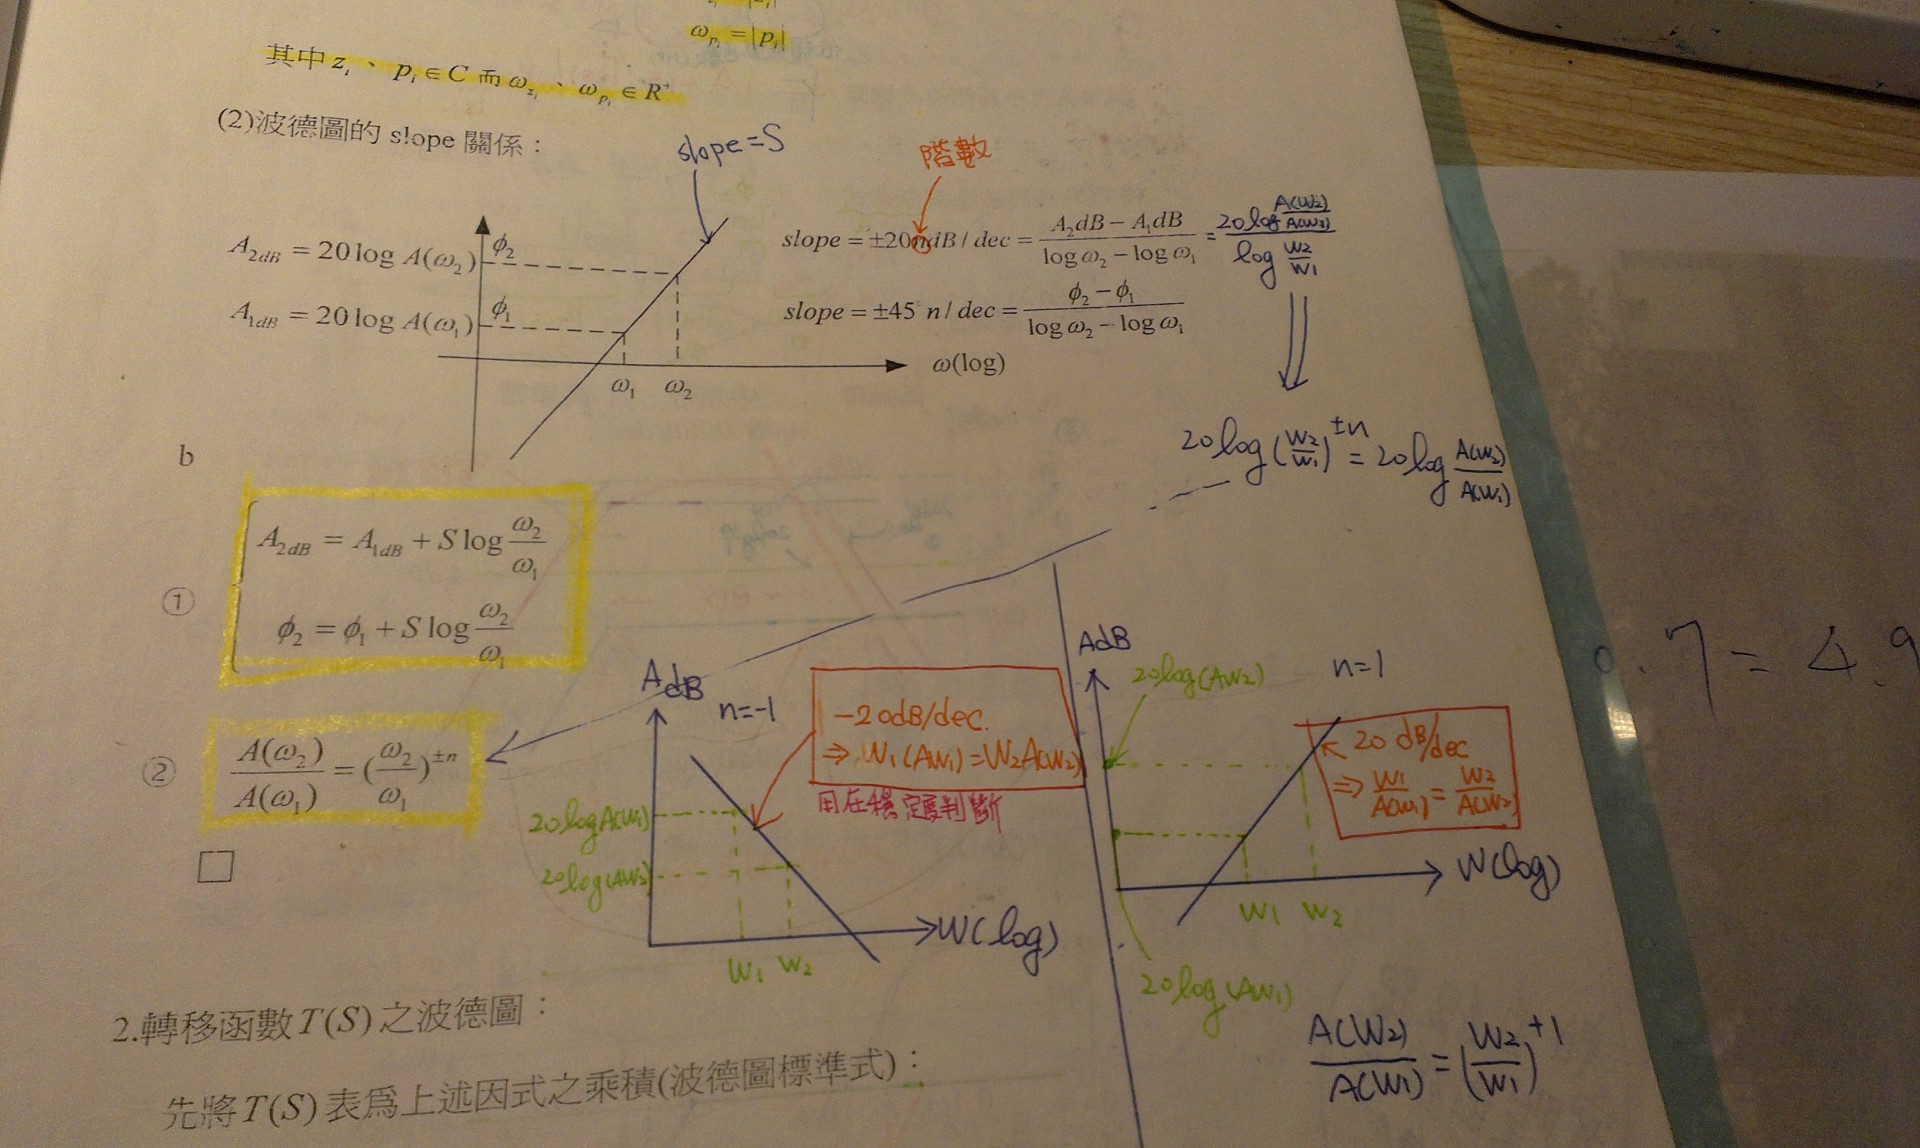 ω_{p_i} = |p_i|
其中 z_i 、 p_i ∈ C 而 ω_{z_i} 、 ω_{p_i} ∈ R⁺
(2)波德圖的 slope 關係：
slope=S
階數
A_{2dB} = 20 log A(ω₂)
ϕ₂
A_{1dB} = 20 log A(ω₁)
ϕ₁
ω₁ ω₂
ω(log)
slope = ±20ndB / dec = \frac{A₂dB − A₁dB}{log ω₂ − log ω₁} = \frac{20log \frac{A(W₂)}{A(W₁)}}{log \frac{W₂}{W₁}}
slope = ±45 n / dec = \frac{ϕ₂ − ϕ₁}{log ω₂ − log ω₁}
20log(\frac{W₂}{W₁})^{±n} = 20log \frac{A(W₂)}{A(W₁)}
b
①
A_{2dB} = A_{1dB} + S log \frac{ω₂}{ω₁}
ϕ₂ = ϕ₁ + S log \frac{ω₂}{ω₁}
②
\frac{A(ω₂)}{A(ω₁)} = (\frac{ω₂}{ω₁})^{±n}
□
AdB
n=-1
-20dB/dec.
⇒ W₁(AW₁)=W₂A(W₂)
用在穩定度判斷
20logA(W₁)
20log(AW₂)
W₁ W₂
W(log)
AdB
20log(AW₂)
n=1
20 dB/dec
⇒ \frac{W₁}{A(W₁)} = \frac{W₂}{A(W₂)}
W(log)
W₁ W₂
20log(AW₁)
\frac{A(W₂)}{A(W₁)} = (\frac{W₂}{W₁})^{+1}
2.轉移函數T(S)之波德圖：
先將T(S)表爲上述因式之乘積(波德圖標準式)：
.7=4.9